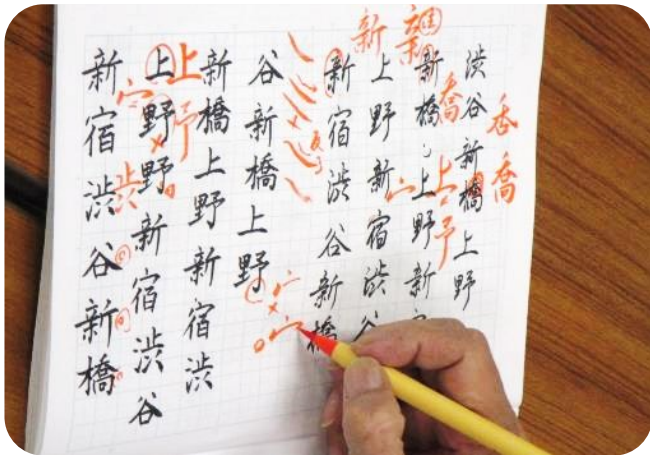 渋谷新橋上野
喬
新橋上野新
上予
新
上野新宿渋谷
新宿渋谷新橋
谷新橋上野
新橋上野新宿渋
上予
上野野新宿渋谷
渋
新宿渋谷新橋